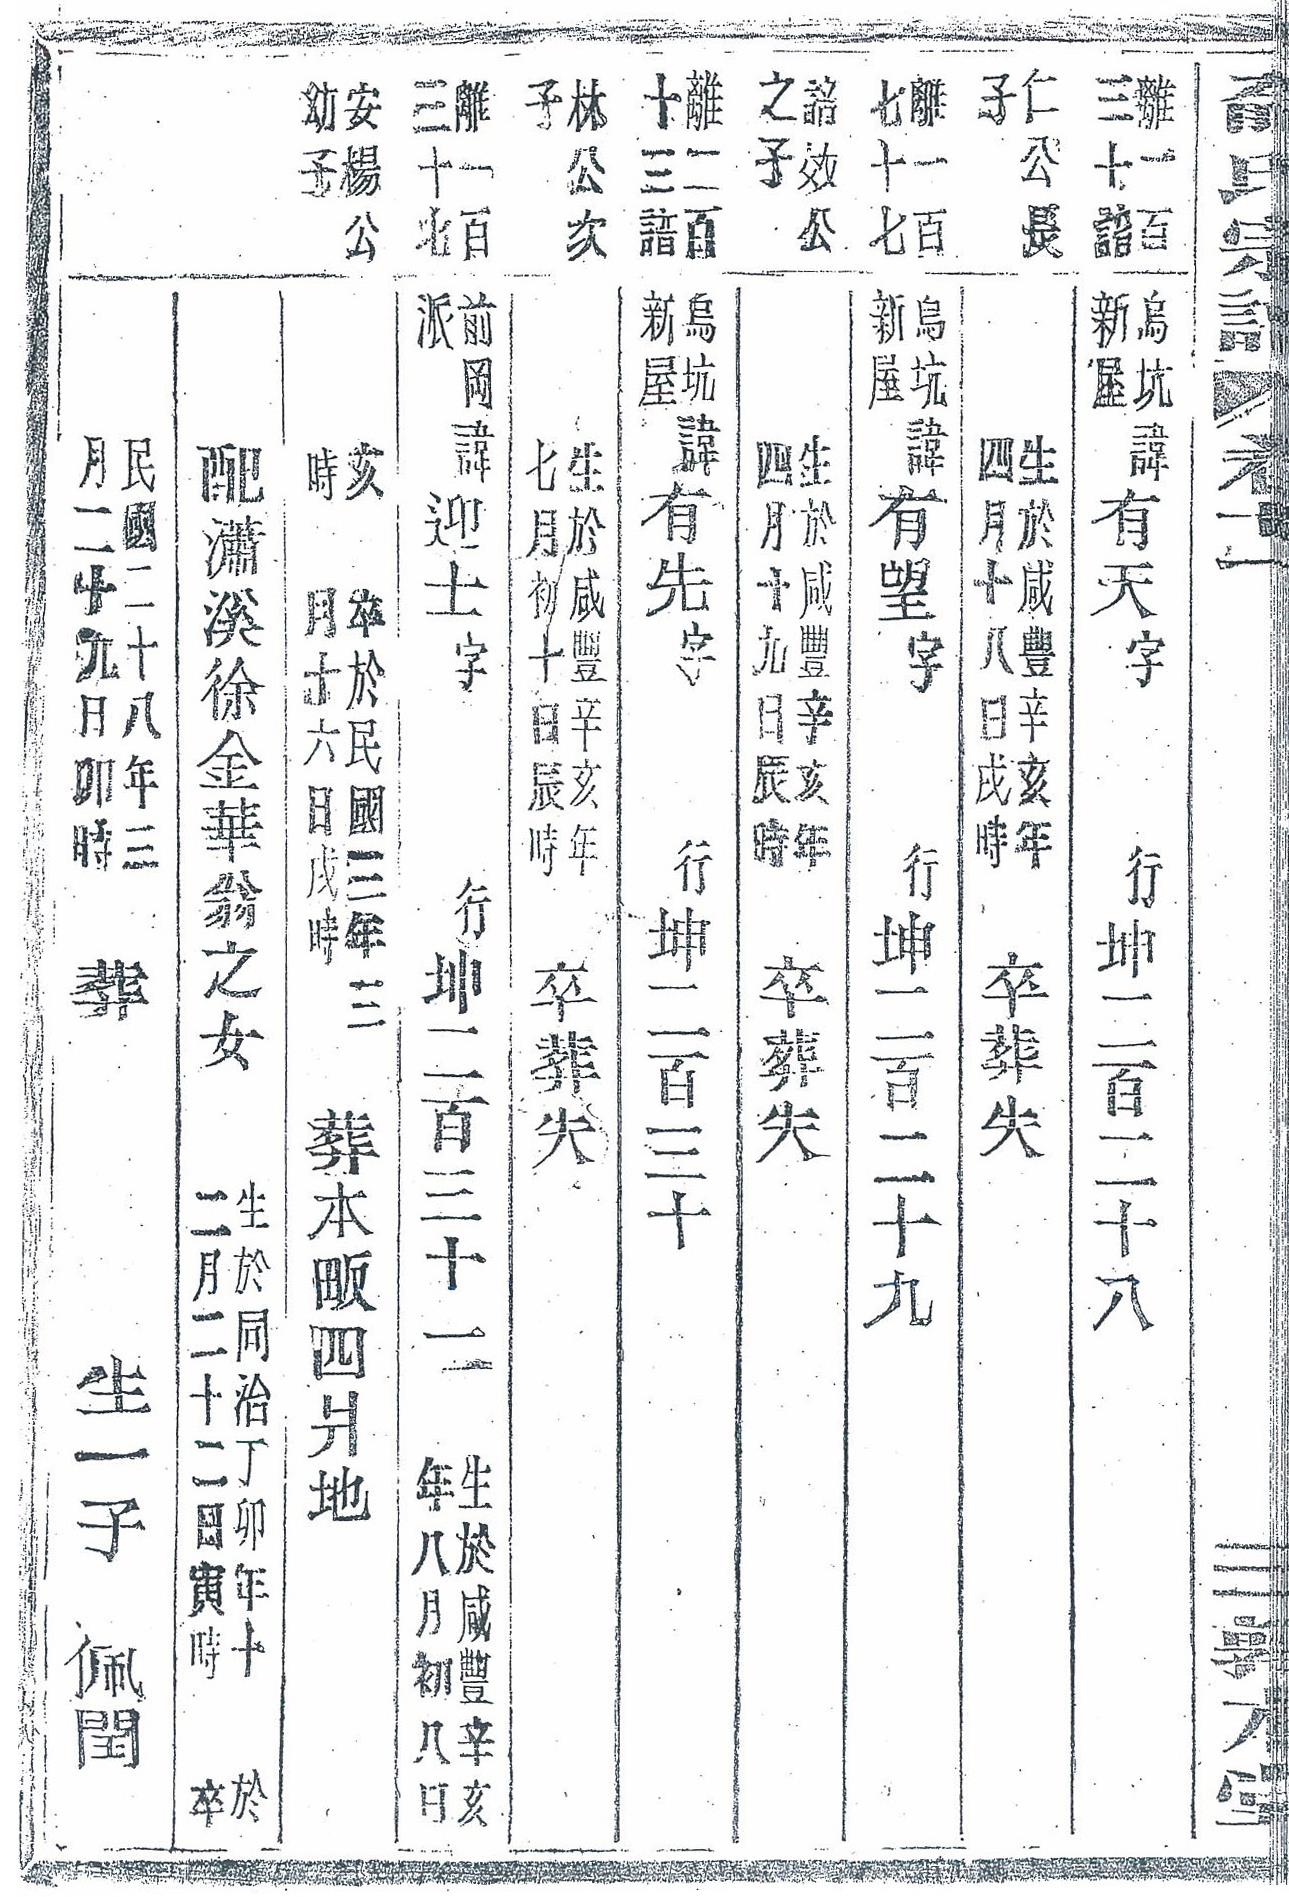 氏宗譜 卷二
離一百
三十諳
仁公長
子
烏坑
新屋
諱有天字 行坤一二百二十八
生於咸豐辛亥年
四月十八日戌時
卒葬失
離一百
七十七
諮效公
之子
烏坑
新屋
諱有望字 行坤一二百二十九
生於咸豐辛亥年
四月十九日辰時
卒葬失
離一二百
十三諳
林公次
子
烏坑
新屋
諱有先字 行坤一二百三十
生於咸豐辛亥年
七月初十日辰時
卒葬失
離一百
三十北
安楊公
幼子
前岡
派
諱迎士字 行坤一二百三十一
生於咸豐辛亥
年八月初八日
亥
時
卒於民國三年三
月十六日戌時
葬本畈四爿地
配瀟溪徐金華翁之女
生於同治丁卯年十
二月二十二日寅時
於
卒
民國二十八年三
月二十九日卯時
葬 生一子 佩閏